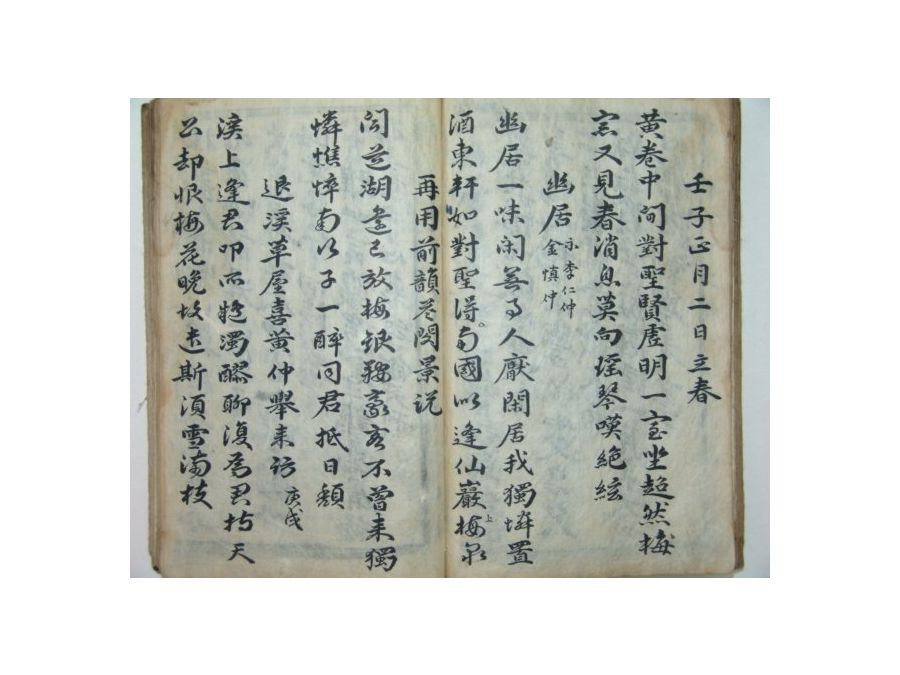 壬子正月二日立春
黃卷中間對聖賢虛明一室坐超然梅
窓又見春消息莫向瑤琴嘆絕絃
幽居 示李仁仲
金愼仲
幽居一味閑無事人厭閑居我獨憐置
酒東軒如對聖得。南國似逢仙巖梅上泉
再用前韻答閔景說
聞道湖邊已放梅銀鞍豪客不曾來獨
憐憔悴南行子一醉同君抵日頹
退溪草屋喜黃仲擧來訪 庚戌
溪上逢君叩所疑濁醪聊復爲君持天
公却恨梅花晚故遣斯須雪滿枝